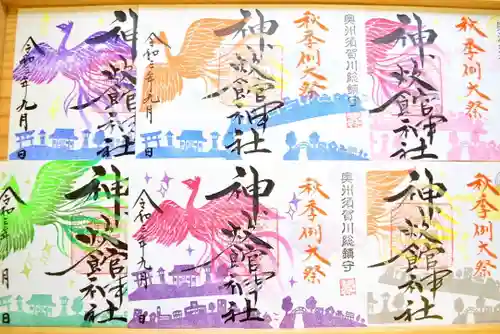 神炊館神社
令和三年九月 日
奥州須賀川総鎮守
秋季例大祭
神炊館神社
令和三年九月 日
秋季例大祭
神炊館神社
神炊館神社
令和三年 月 日
奥州須賀川総鎮守
秋季例大祭
神炊館神社
令和三年九月 日
秋季例大祭
神炊館神社